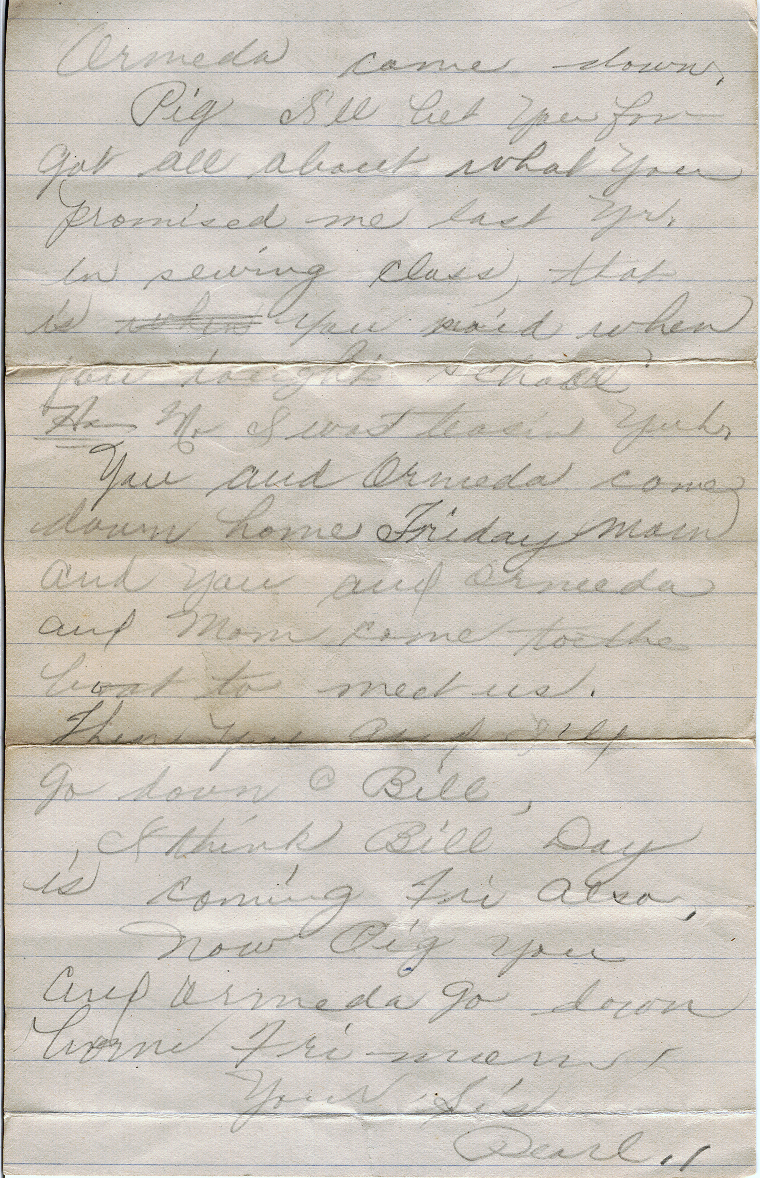 Ormeda come down.
Pig I'll bet you for
got all about what you
promised me last yr.
in sewing class, that
is when you said when
you taught school
Ha No I was teasin
You and Ormeda come
down home Friday morn
and you and Ormeda
and Mom come to the
boat to meet us.
Then you and I'll
go down @ Bill,
I think Bill Day
is coming Fri also,
Now Pig you
and Ormeda go down
home Fri morn!
Your Sis
Pearl.